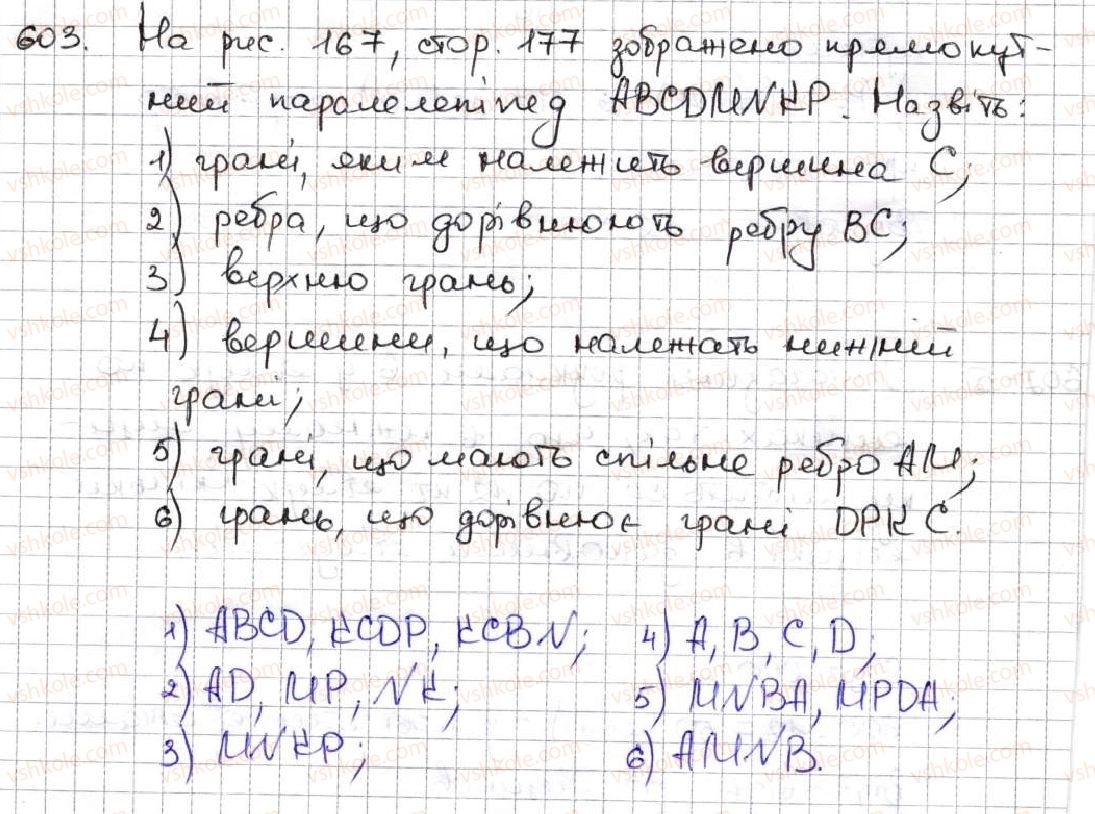 603. На рис. 167, стор. 177 зображено прямокут-
ний паралелепіпед ABCDMNKP. Назвіть:
1) грані, яким належить вершина C;
2) ребра, що дорівнюють ребру BC;
3) верхню грань;
4) вершини, що належать нижній
грані;
5) грані, що мають спільне ребро AM;
6) грань, що дорівнює грані DPKC.
1) ABCD, KCDP, KCBN;
2) AD, MP, NK;
3) MNKP;
4) A, B, C, D;
5) MNBA, MPDA;
6) AMNB.